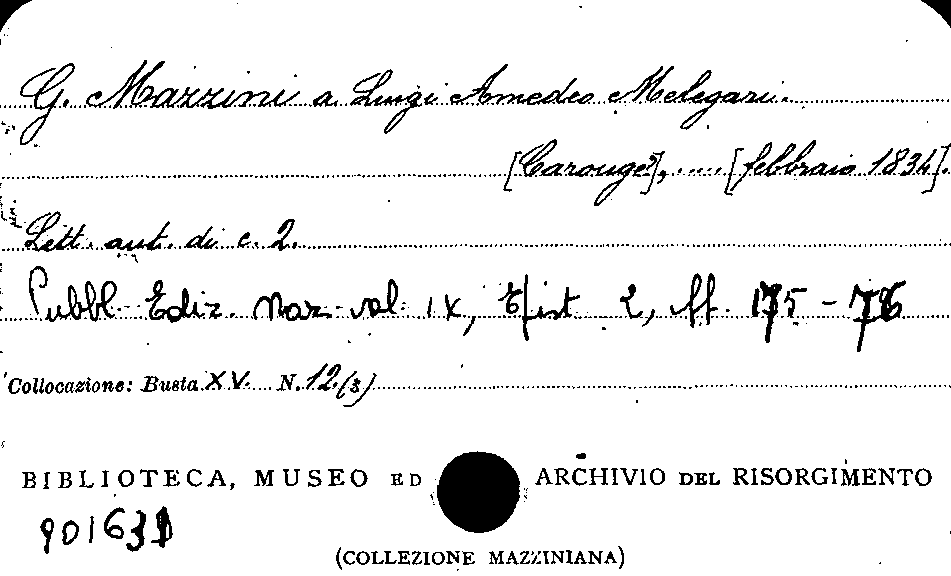 G. Mazzini a Luigi Amedeo Melegari.
[Carouge?], ..... [febbraio 1834].
Lett. aut. di c. 2.
Pubbl. Ediz. Naz. vol. IX, Epist. 2, pp. 175-76
Collocazione: Busta XV. N. 12 (3)
BIBLIOTECA, MUSEO ED ARCHIVIO DEL RISORGIMENTO
(COLLEZIONE MAZZINIANA)